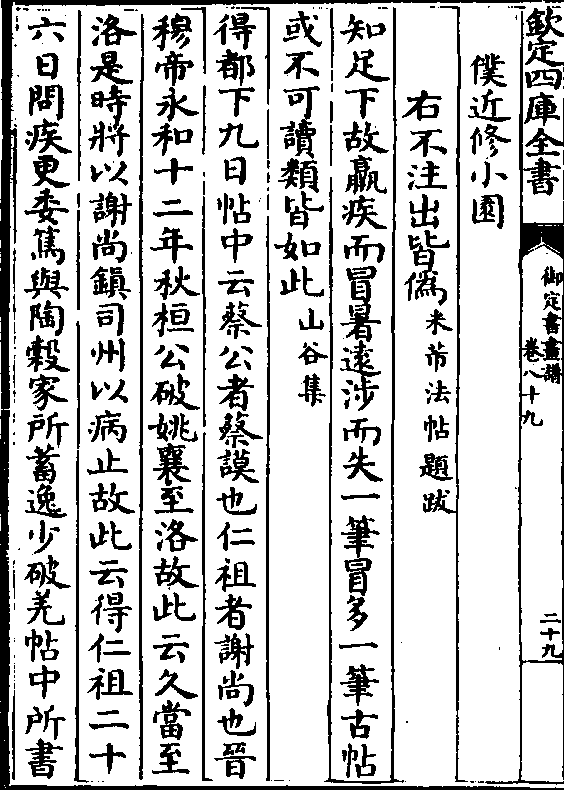 欽定四庫全書
御定書畫譜
卷八十九
二十九
僕近修小園
右不注出皆僞米芾法帖題跋
知足下故羸疾而冒暑遠涉而失一筆冒多一筆古帖
或不可讀類皆如此山谷集
得都下九日帖中云蔡公者蔡謨也仁祖者謝尚也晉
穆帝永和十二年秋桓公破姚襄至洛故此云久當至
洛是時將以謝尚鎮司州以病止故此云得仁祖二十
六日問疾更委篤與陶穀家所蓄逸少破羌帖中所書